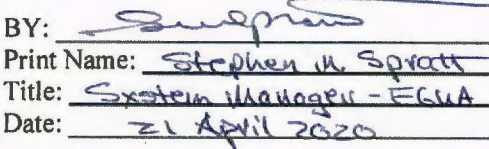 BY:
Print Name: Stephen M. Spratt
Title: System Manager - EGUA
Date: 21 April 2020